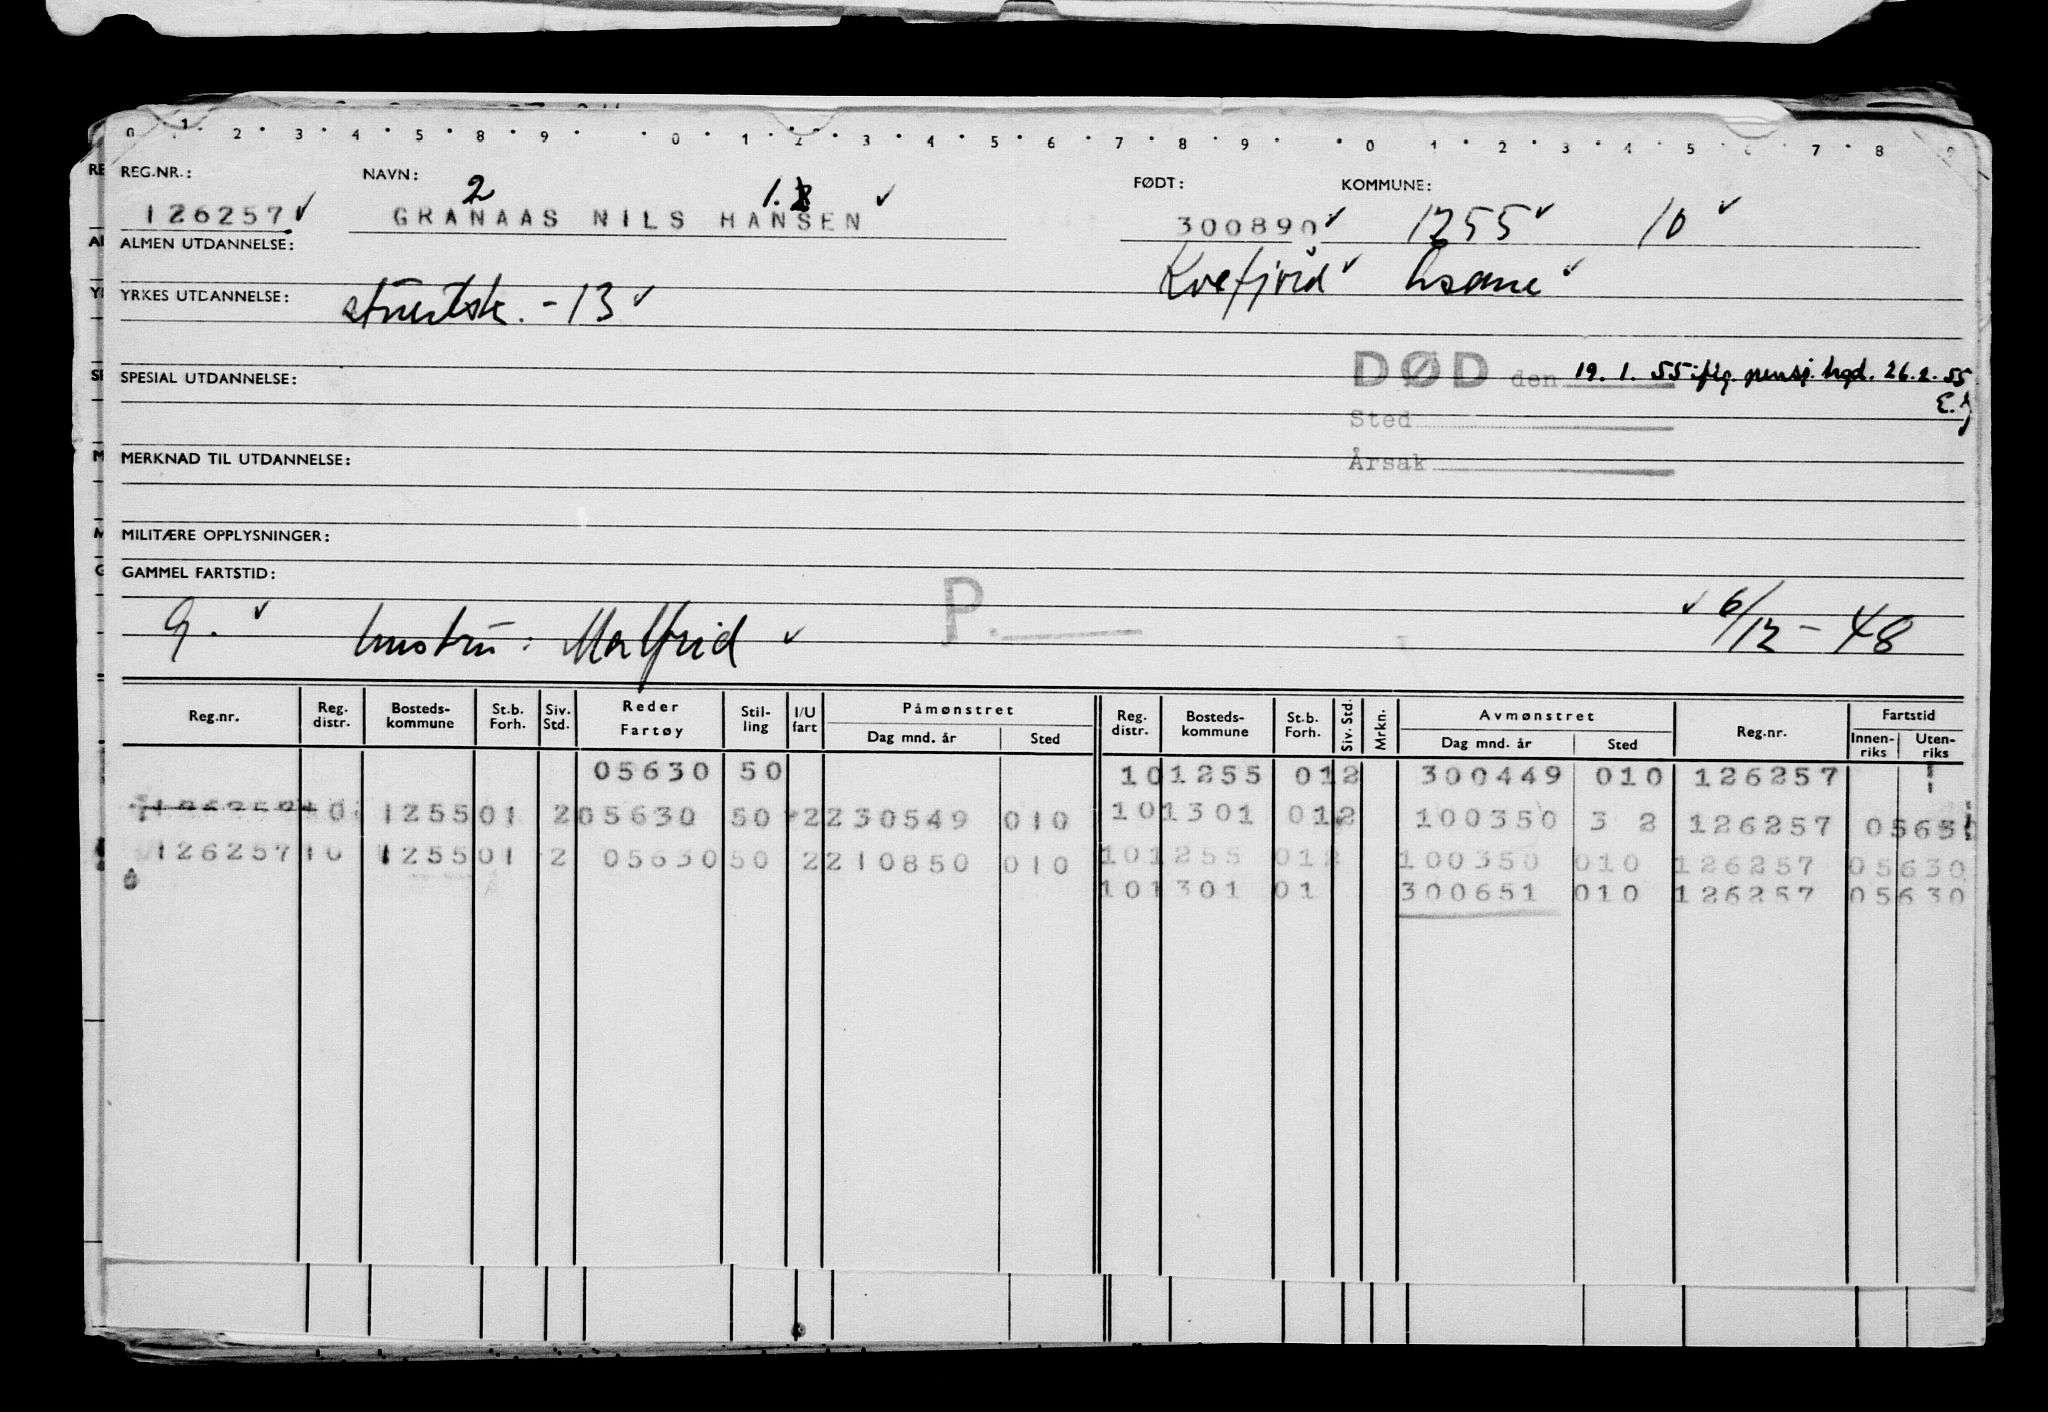 0 1 2 3 4 5 8 9 0 1 2 3 4 5 6 7 8 9 0 1 2 3 4 5 6 7 8 9
REG.NR.: NAVN: FØDT: KOMMUNE:
2 1.
126257 GRANAAS NILS HANSEN 300890 1255 10
ALMEN UTDANNELSE:
Kvefjord Åsane
YRKES UTDANNELSE: stuertsk. - 13
DØD den 19. 1. 55 iflg. pensj. trgd. 26.2.55
SPESIAL UTDANNELSE:
Sted
MERKNAD TIL UTDANNELSE: Årsak
MILITÆRE OPPLYSNINGER:
GAMMEL FARTSTID:
P.
g. hustru: Malfrid 6/12 - 48
Reg.nr. Reg. distr. Bosteds-kommune St.b. Forh. Siv. Std. Reder Fartøy Stil-ling I/U fart Påmønstret Dag mnd. år Sted Reg. distr. Bosteds-kommune St.b. Forh. Siv. Std. Mrkn. Avmønstret Dag mnd. år Sted Reg.nr. Fartstid Innen-riks Uten-riks
05630 50 10 1255 01 2 300449 010 126257
1255 01 2 05630 50 2 230549 010 10 1301 01 2 100350 3 2 126257 0563
126257 10 1255 01 2 05630 50 2 210850 010 10 1255 01 2 100350 010 126257 05630
10 1301 01 300651 010 126257 05630